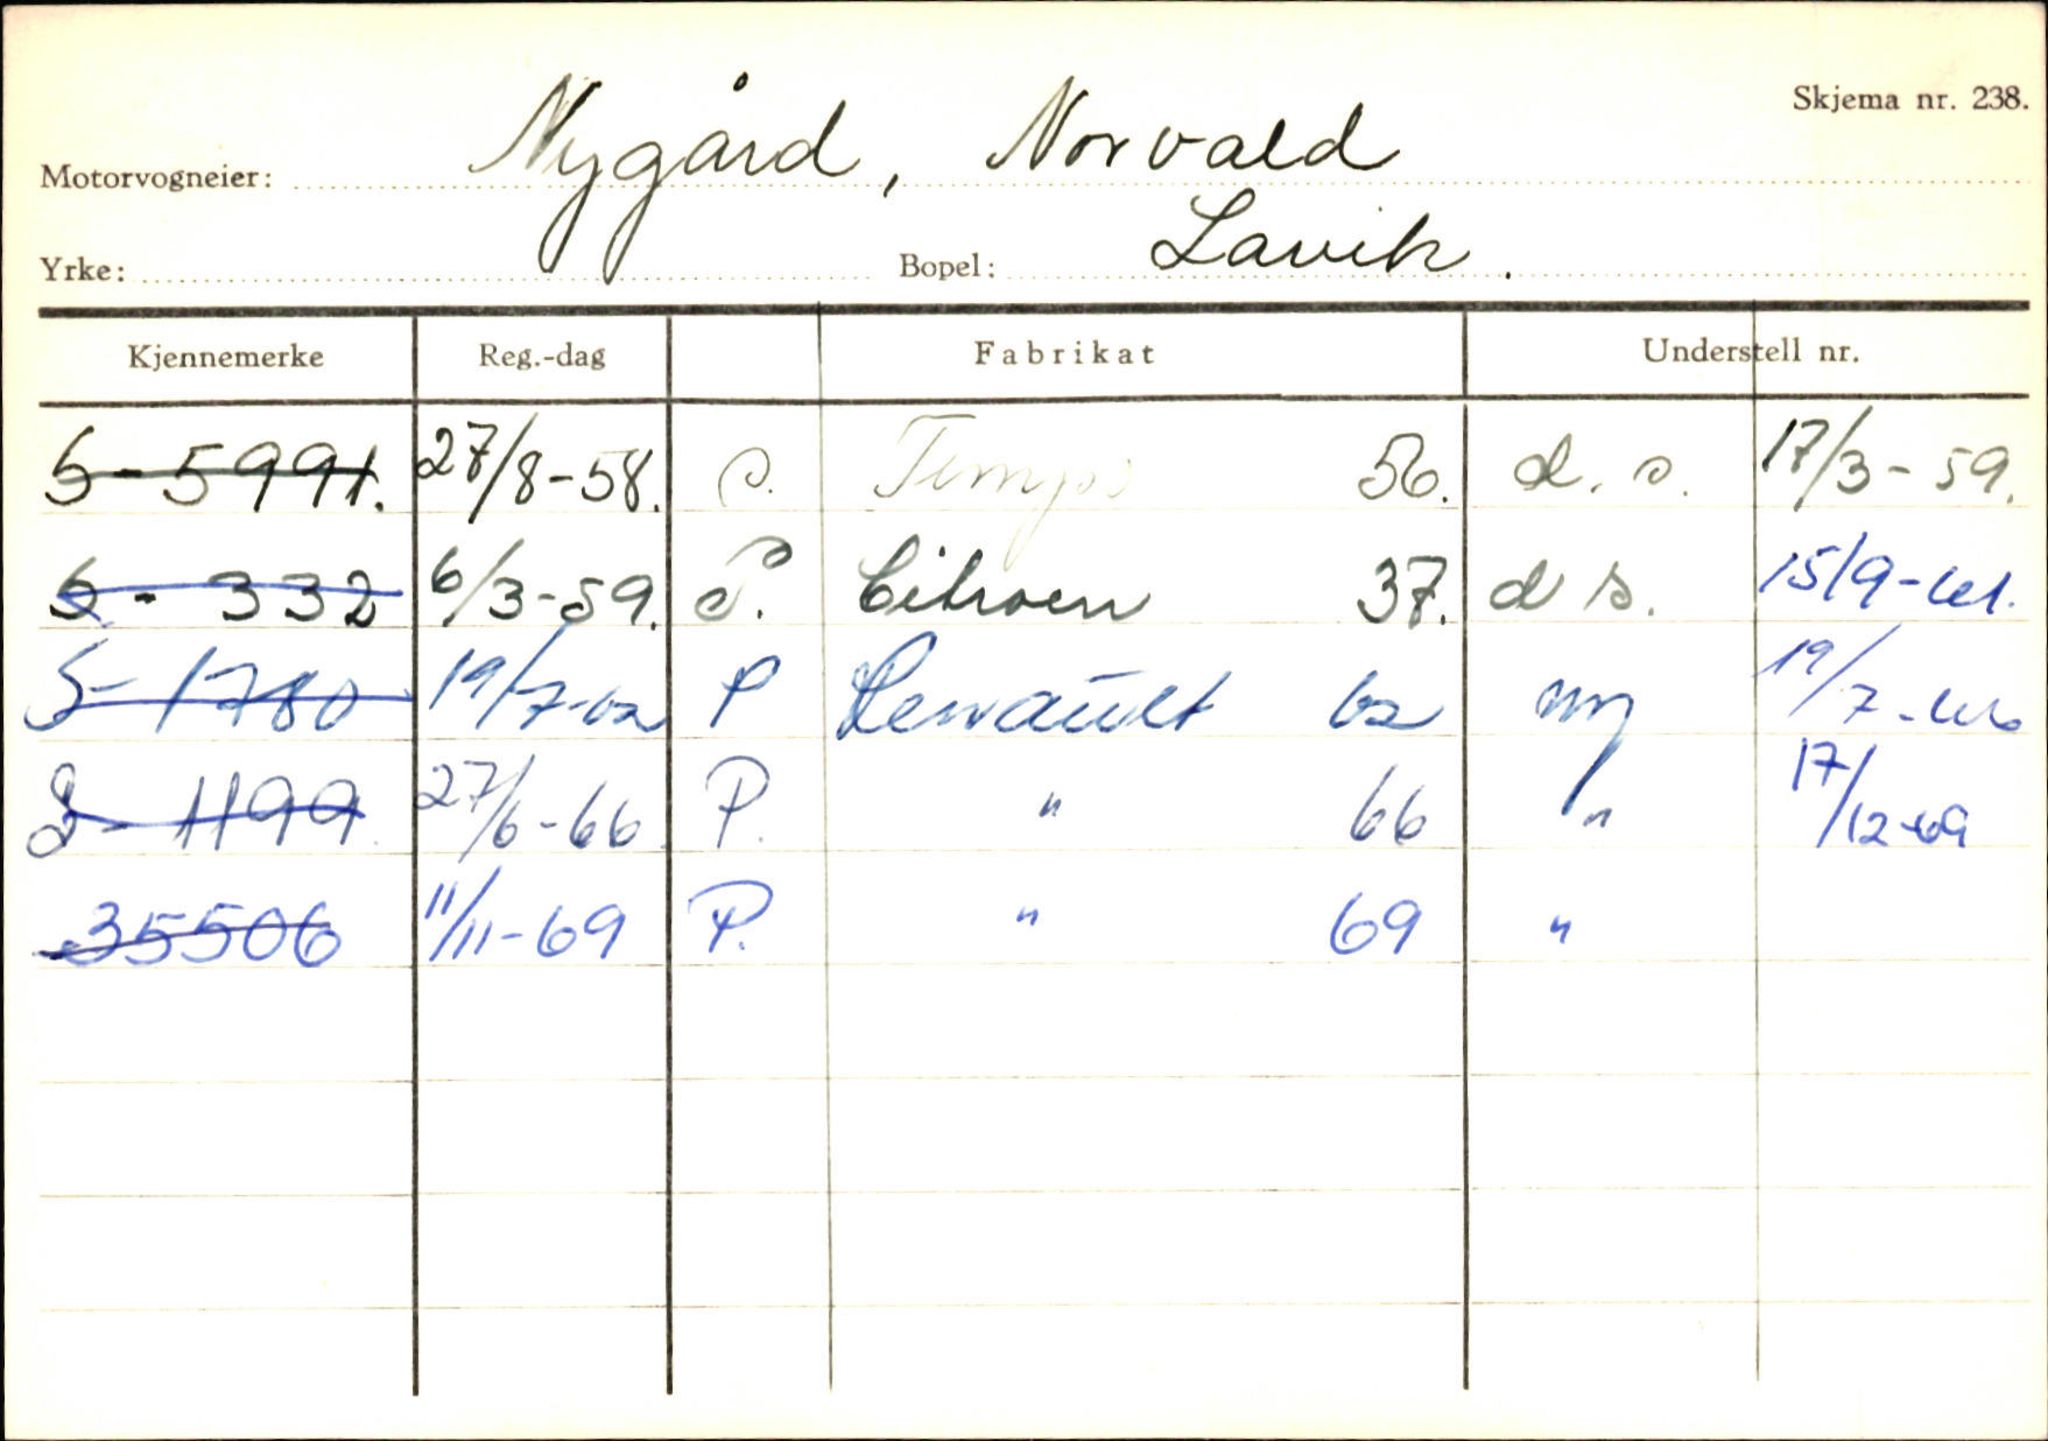 Skjema nr. 238.
Motorvogneier: Nygård, Norvald
Yrke: Bopel: Lavik.
Kjennemerke Reg.-dag Fabrikat Understell nr.
S-5991. 27/8-58. Tempo 56. d. s. 17/3-59.
S-332 6/3-59. P. Citroen 37. d s. 15/9-61.
S-1780 19/7-62 P Renault 62 ny 19/7-66
S-1199 27/6-66. P. " 66 " 17/12-69
35506 11/11-69 P. " 69 "